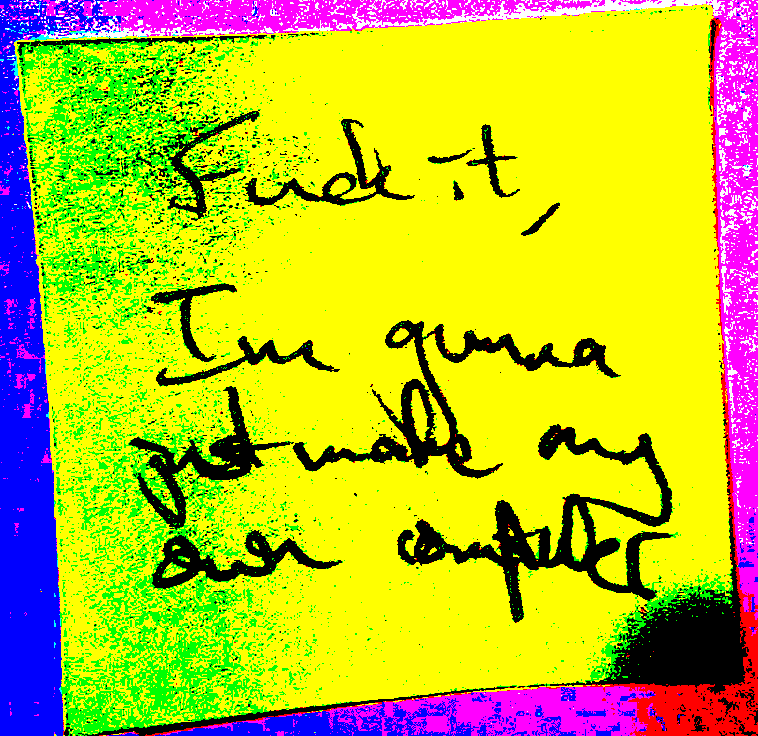 Fuck it,
I'm gunna
just make my
own compiler